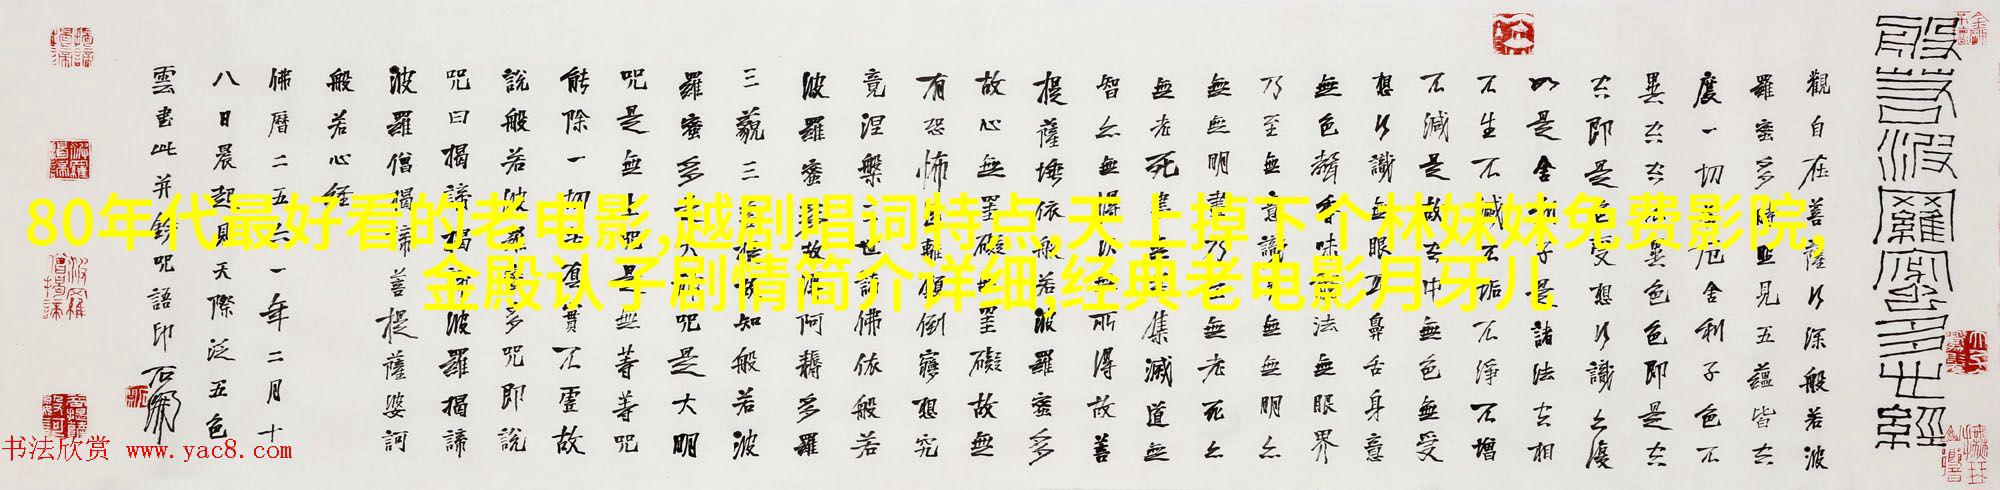 80年代最好看的老电影,越剧唱词特点,天上掉下个林妹妹免费影院,
金殿认子剧情简介详细,经典老电影月牙儿
般若波羅蜜多心經
觀自在菩薩行深般若波
羅蜜多時照見五蘊皆空
度一切苦厄舍利子色不
異空空不異色色即是空
空即是色受想行識亦復
如是舍利子是諸法空相
不生不滅不垢不淨不增
不減是故空中無色無受
想行識無眼耳鼻舌身意
無色聲香味觸法無眼界
乃至無意識界無無明亦
無無明盡乃至無老死亦
無老死盡無苦集滅道無
智亦無得以無所得故菩
提薩埵依般若波羅蜜多
故心無罣礙無罣礙故無
有恐怖遠離顛倒夢想究
竟涅槃三世諸佛依般若
波羅蜜多故得阿耨多羅
三藐三菩提故知般若波
羅蜜多是大神咒是大明
咒是無上咒是無等等咒
能除一切苦真實不虛故
說般若波羅蜜多咒即說
咒曰揭諦揭諦波羅揭諦
波羅僧揭諦菩提薩婆訶
般若心經
佛曆二五六一年二月十
八日晨起見天際泛五色
雲書此并鈐咒語印
书法欣赏 www.yac8.com